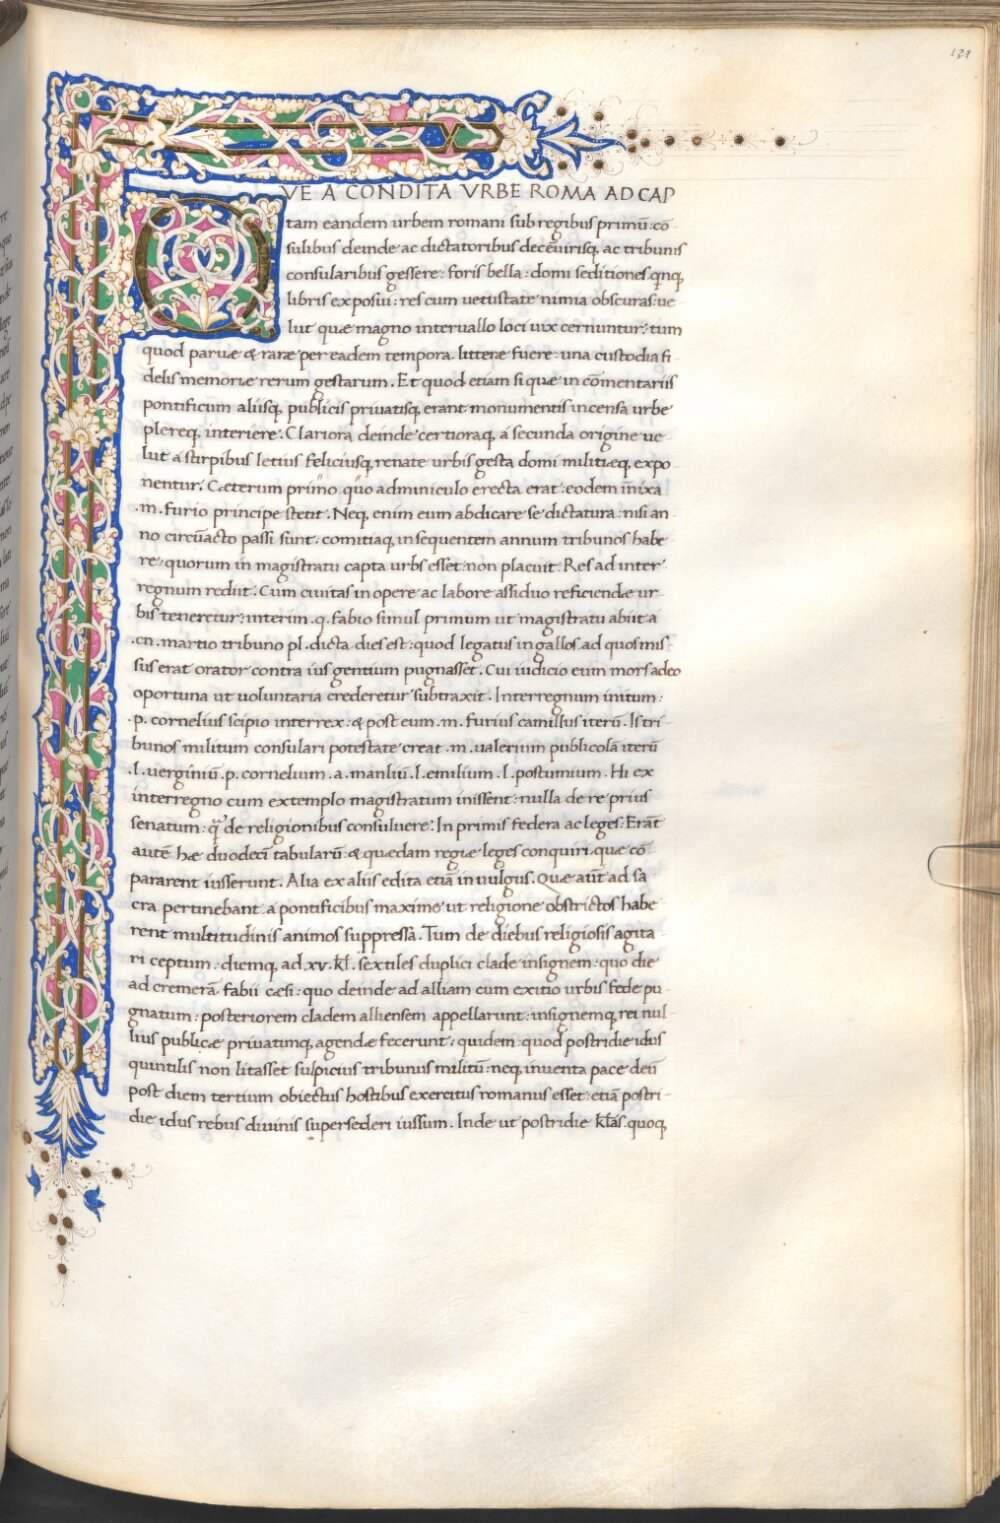 121
QVE A CONDITA VRBE ROMA AD CAP
tam eandem urbem romani sub regibus primũ: cõ
sulibus deinde ac dictatoribus decẽuirisq; ac tribunis
consularibus gessere: foris bella: domi seditiones: qnq;
libris exposui: res cum uetustate nimia obscuras: ue
lut quæ magno interuallo loci uix cernuntur: tum
quod paruæ & raræ per eadem tempora litteræ fuere: una custodia fi
delis memoriæ rerum gestarum. Et quod etiam si quæ in cõmentariis
pontificum aliisq; publicis priuatisq; erant monumentis incensa urbe
plereq; interiere. Clariora deinde certioraq; a secunda origine ue
lut a stirpibus letius feliciusq; renate urbis gesta domi militiæq; expo
nentur. Cæterum primo quo adminiculo erecta erat: eodem innixa
.m. furio principe stetit. Neq; enim eum abdicare se dictatura: nisi an
no circũacto passi sunt: comitiaq; insequentem annum tribunos habe
re: quorum in magistratu capta urbs esset: non placuit. Res ad inter
regnum rediit. Cum ciuitas in opere ac labore assiduo reficiendæ ur
bis teneretur: interim .q. fabio simul primum ut magistratu abiit a
.cn. martio tribuno pl. dicta dies est: quod legatus in gallos ad quos mis
sus erat orator contra ius gentium pugnasset. Cui iudicio eum mors adeo
oportuna ut uoluntaria crederetur subtraxit. Interregnum initum:
.p. cornelius scipio interrex: & post eum .m. furius camillus iterũ. Is tri
bunos militum consulari potestate creat .m. ualerium publicolã iterũ
.l. uerginiũ .p. cornelium .a. manliũ .l. emilium .l. postumium. Hi ex
interregno cum extemplo magistratum inissent: nulla de re prius
senatum: q̃ de religionibus consuluere. In primis federa ac leges: Erãt
autẽ hæ duodecĩ tabularũ: & quædam regiæ leges conquiri quæ cõ
pararent iusserunt. Alia ex aliis edita etiã in uulgus. Quæ aũt ad sa
cra pertinebant a pontificibus maxime ut religione obstrictos habe
rent multitudinis animos suppressa. Tum de diebus religiosis agita
ri ceptum: diemq; ad .xv. kl. sextiles duplici clade insignem: quo die
ad cremerã fabii cæsi: quo deinde ad alliam cum exitio urbis fede pu
gnatum: posteriorem cladem alliensem appellarunt: insignemq; rei nul
lius publicæ priuatimq; agendæ fecerunt: quidem: quod postridie idus
quintilis non litasset sulpicius tribunus militũ: neq; inuenta pace deũ
post diem tertium obiectus hostibus exercitus romanus esset: etiã postri
die idus rebus diuinis supersederi iussum. Inde ut postridie kl̃as quoq;